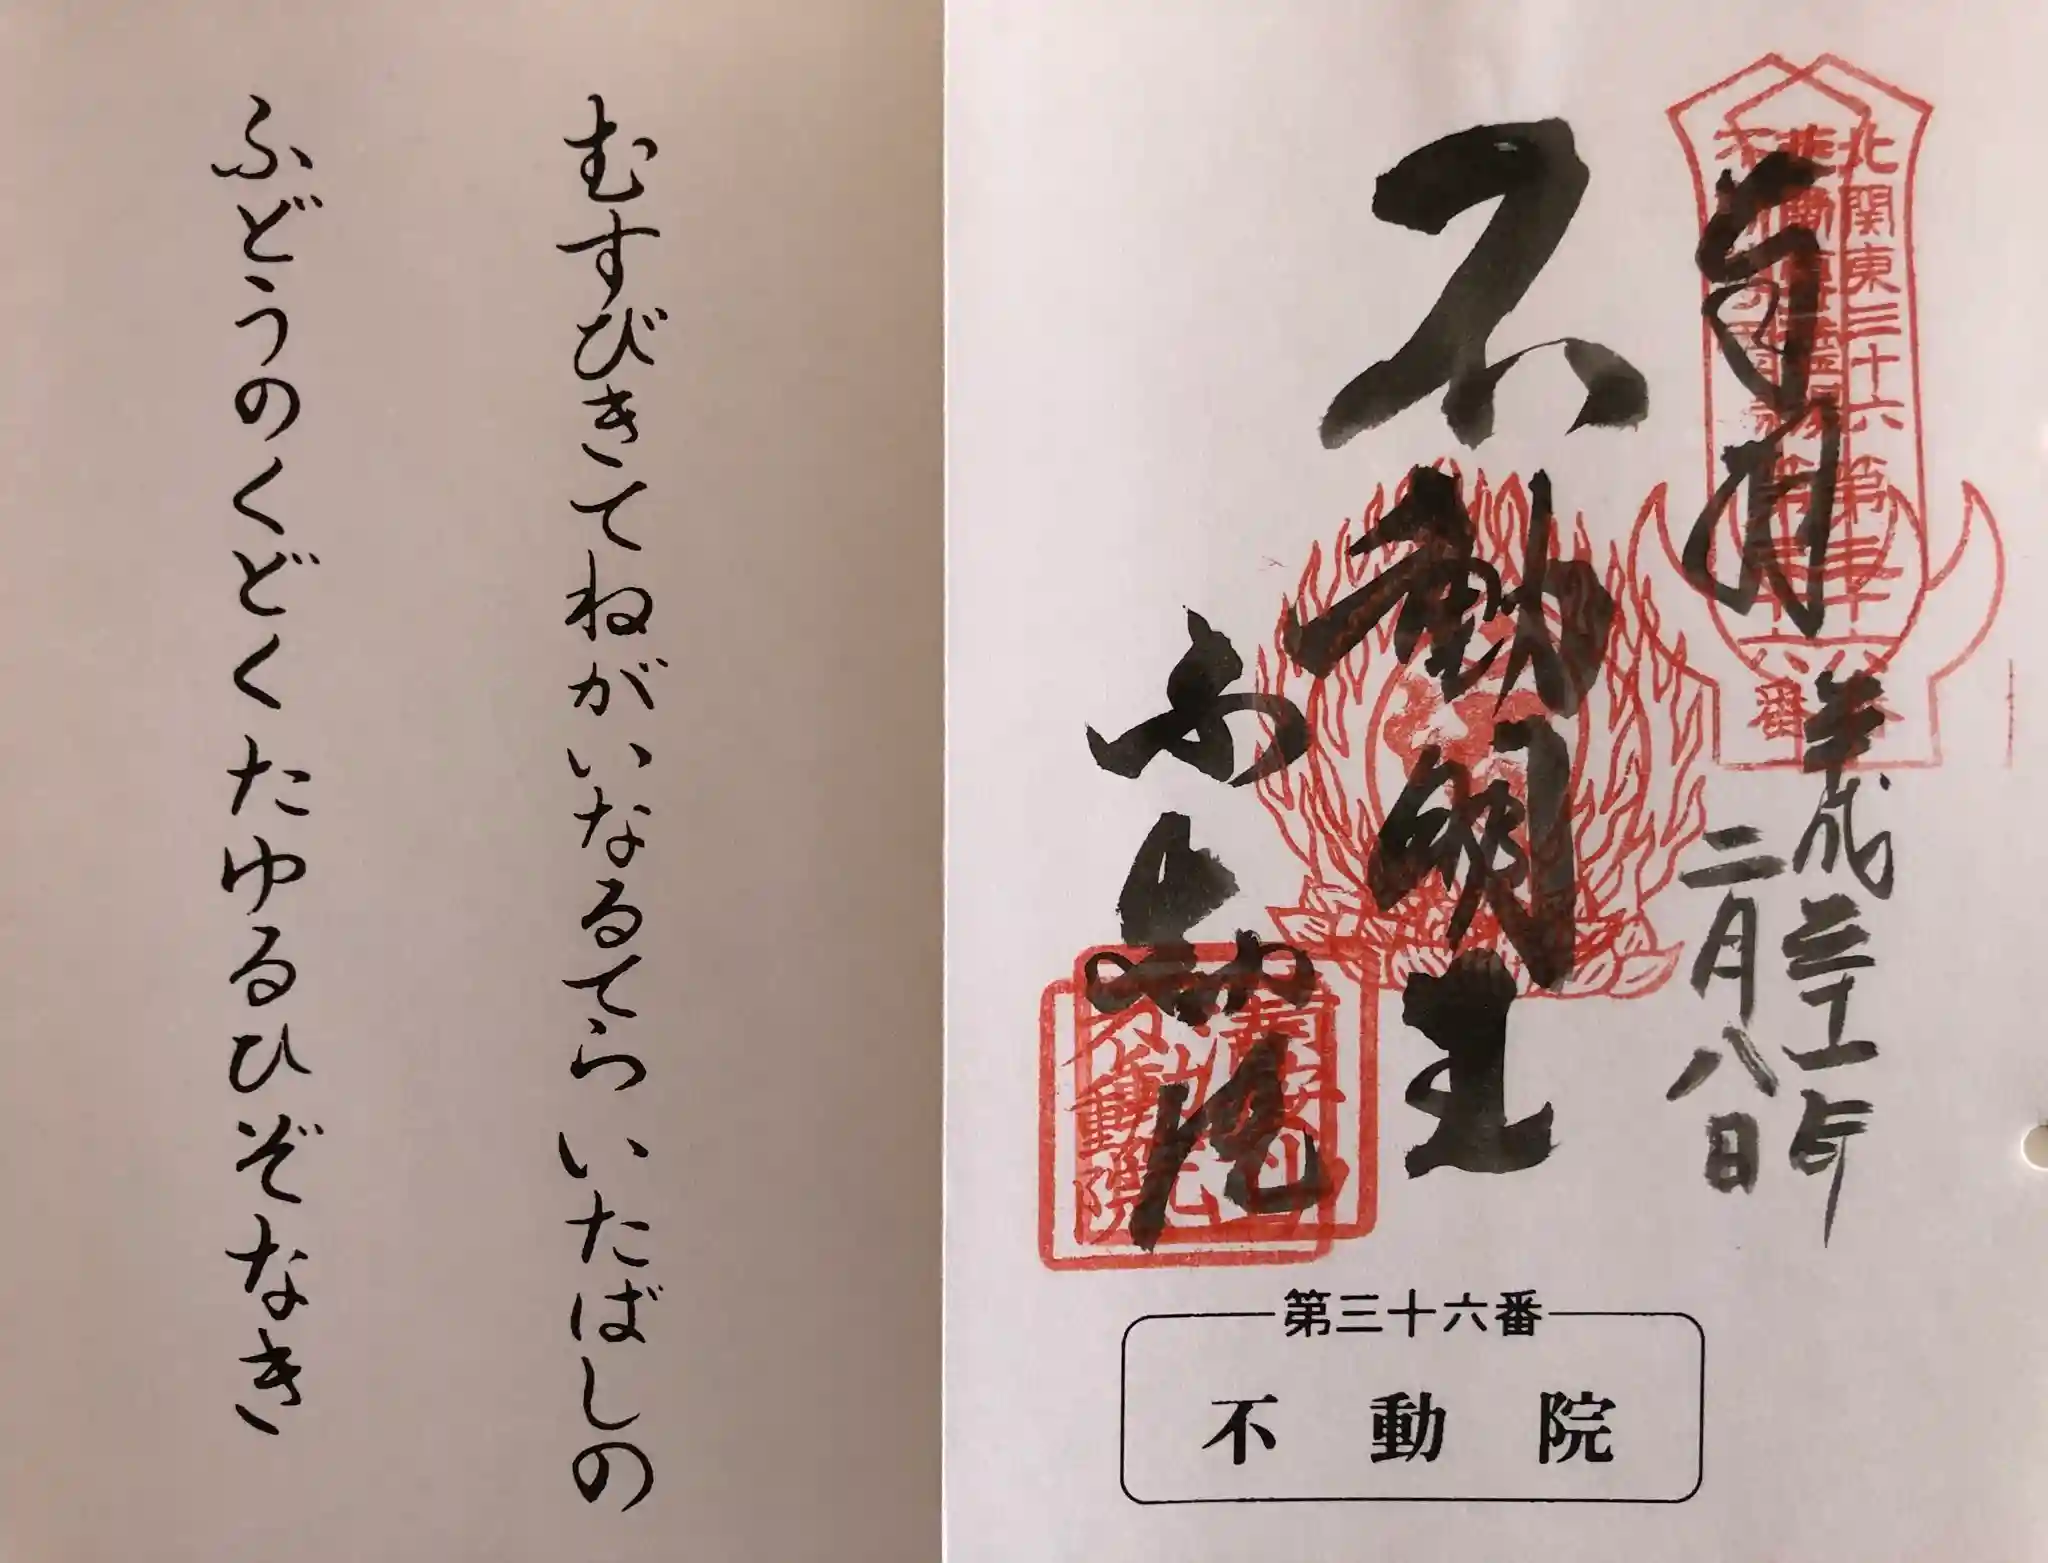 奉拝
北関東三十六
不動尊霊場
第三十六番
平成三十一年
二月八日
不動明王
不動院
不動院
第三十六番
不動院
むすびきてねがいなるてら いたばしの
ふどうのくどくたゆるひぞなき